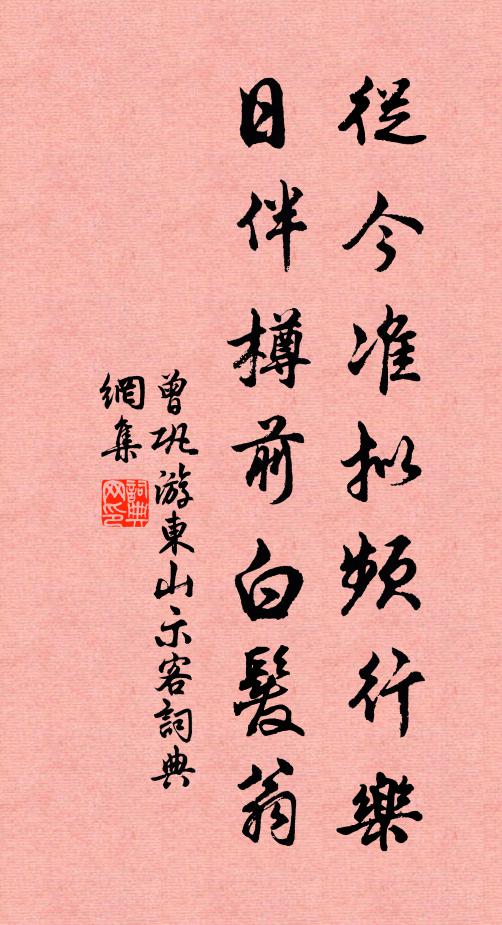 從今准拟頻行樂
日伴樽前白髮翁
曾巩游東山示客詞典
網集
詞典
网印